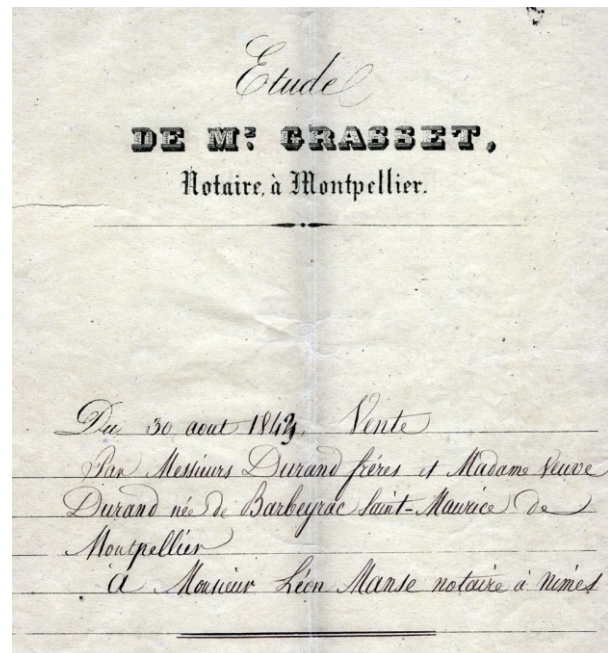 Etude
DE Me. GRASSET,
Notaire, à Montpellier.
Du 30 aout Vente
Par Messieurs Durand fréres et Madame Veuve
Durand née de Barbeyrac Saint-Maurice de
Montpellier
A Monsieur Léon Manse notaire à Nimes